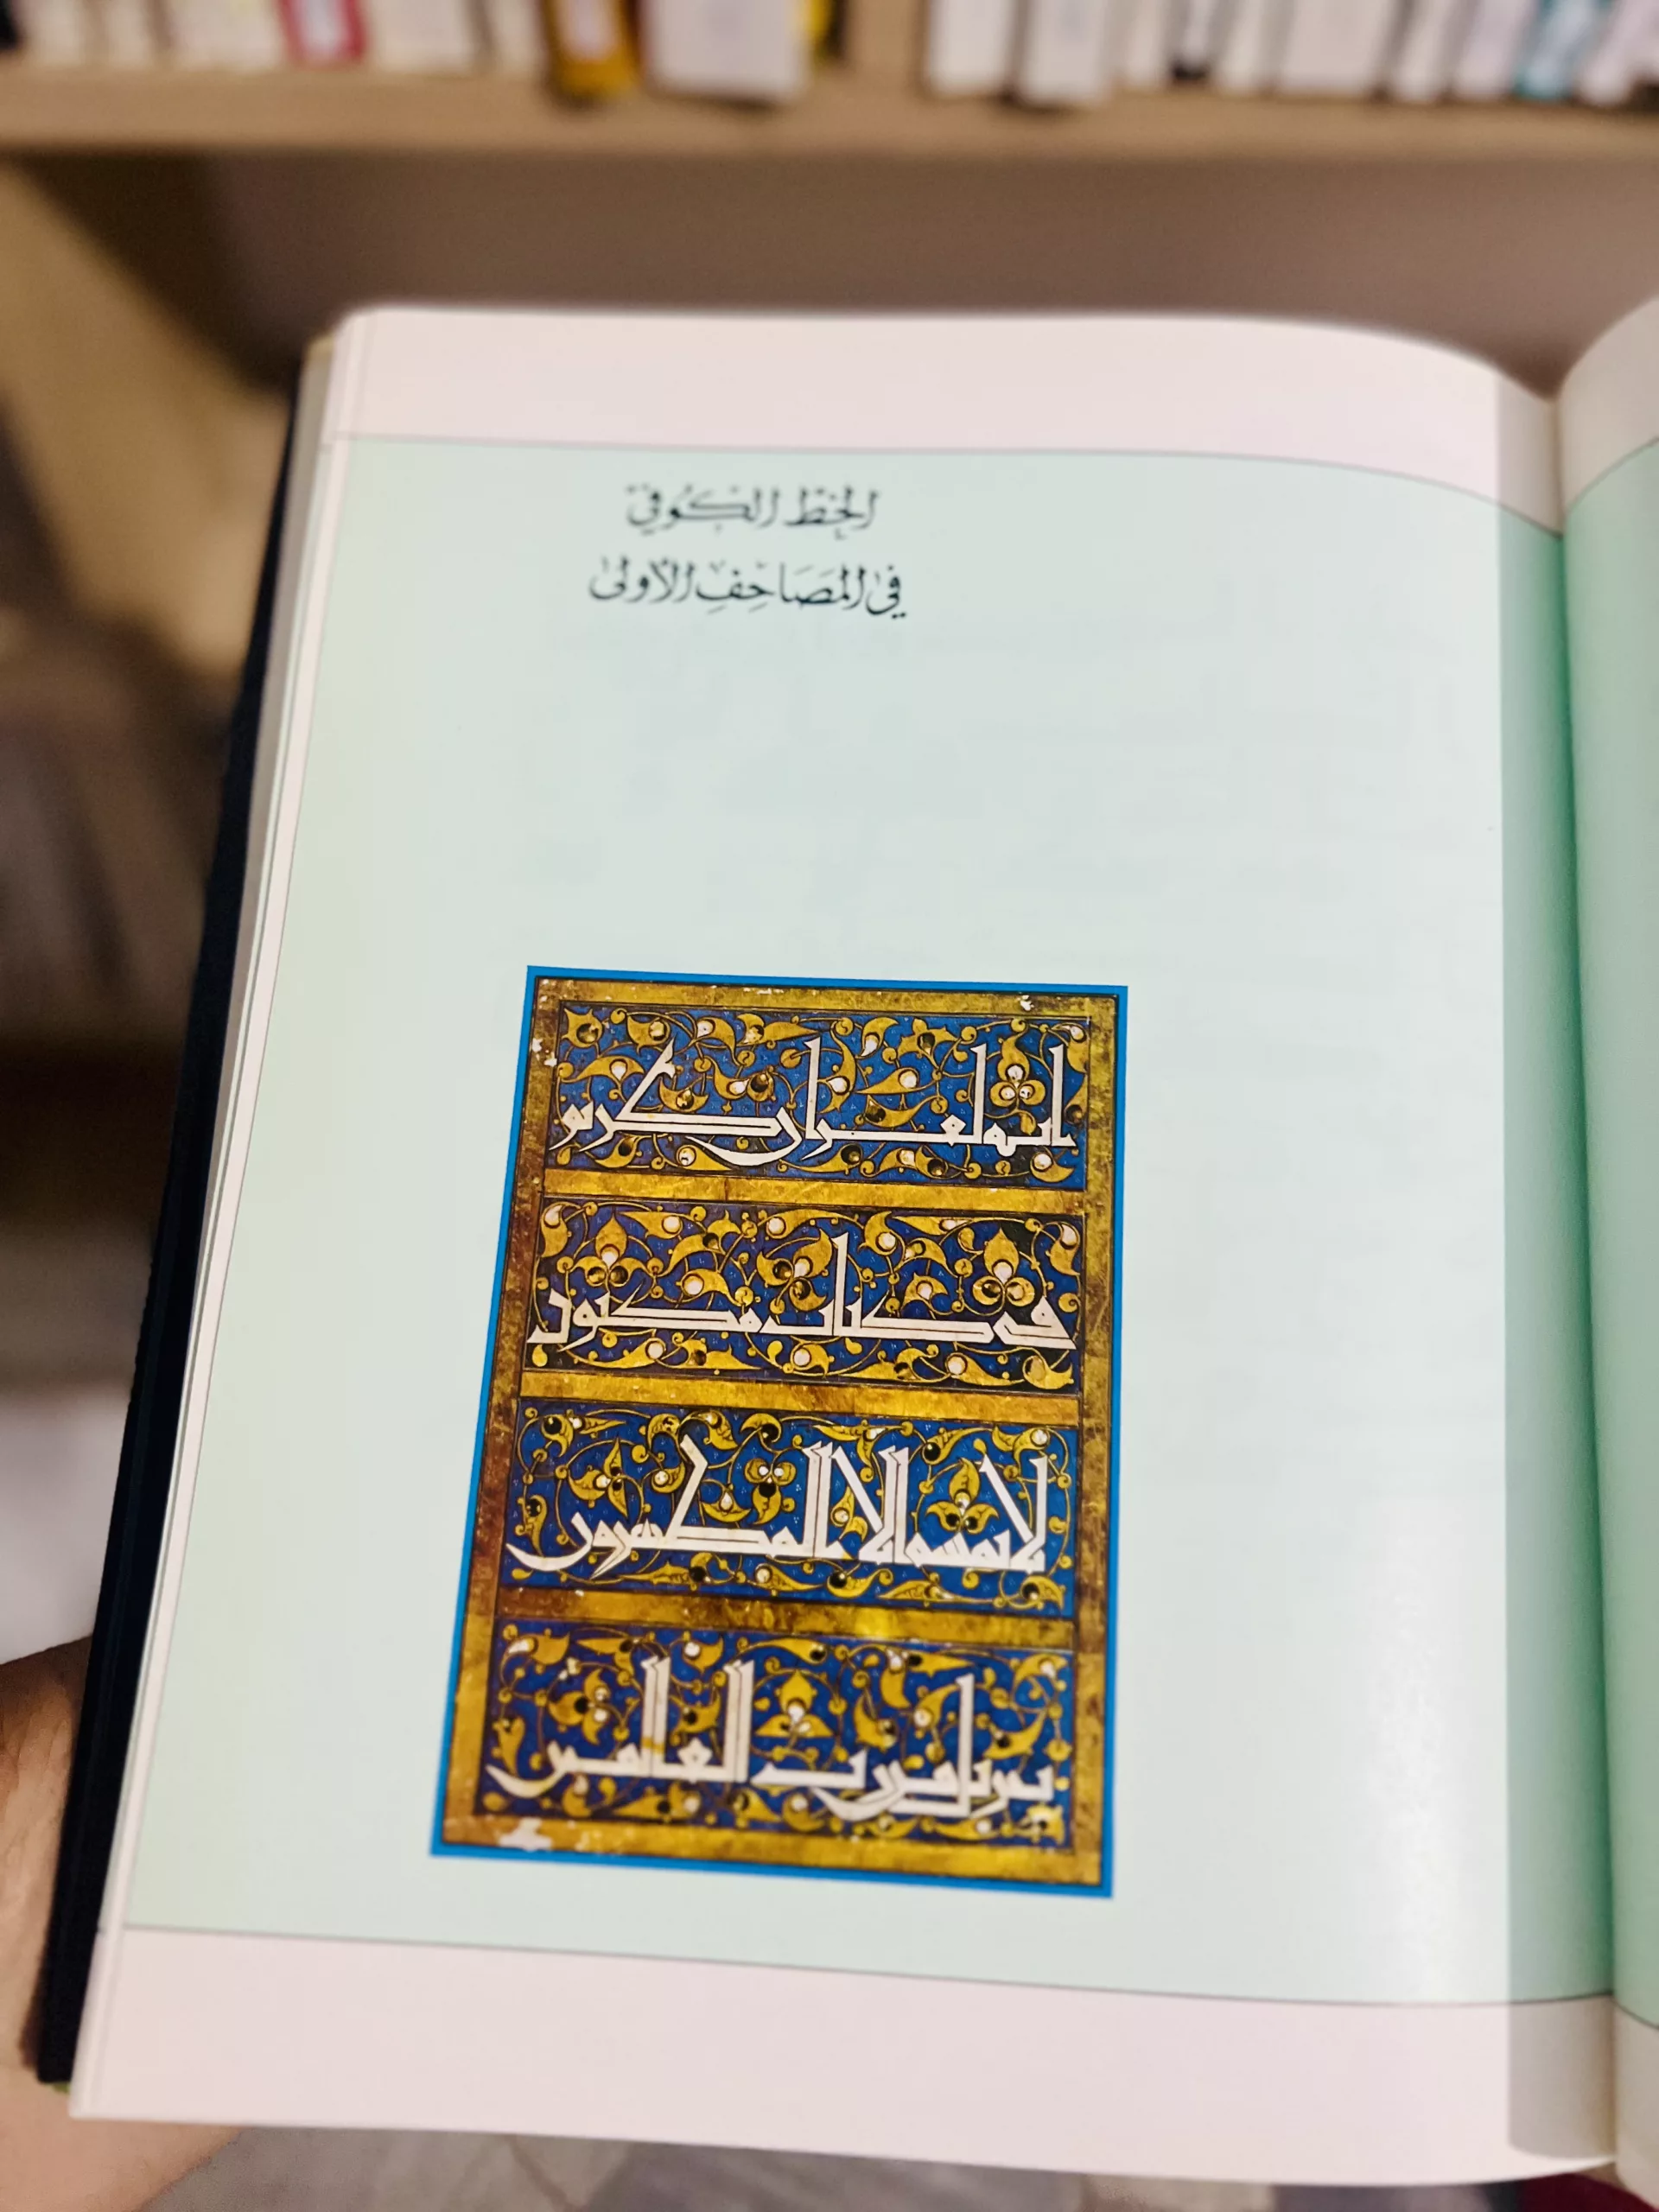 الخَطّ الكُوفيّ
في المَصَاحِفِ الأولىٰ
انه لقران كريم
في كتاب مكنون
لا يمسه الا المطهرون
تنزيل من رب العالمين